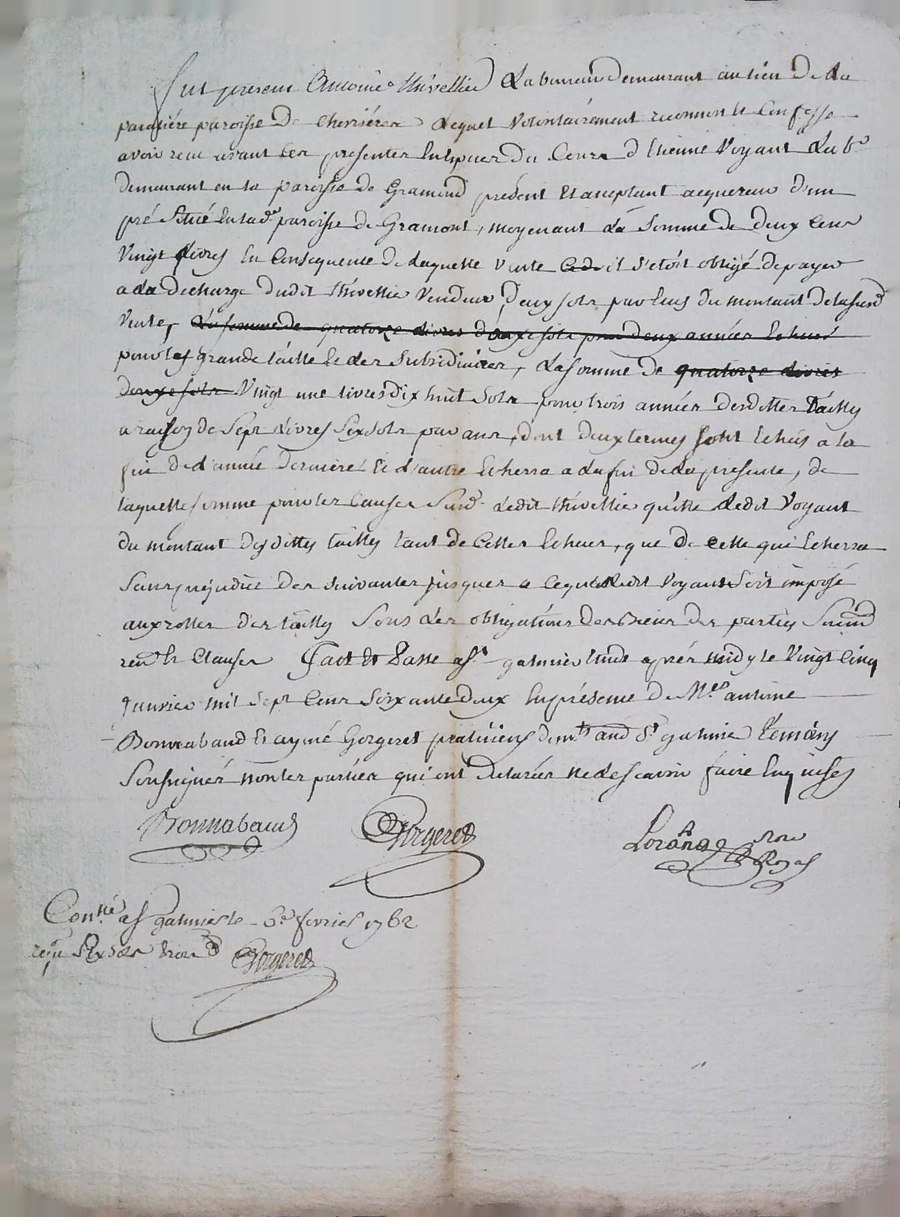 fut present Antoine thivellier Laboureur demeurant au lieu de la
paroisse de chevrieres Lequel volontairement reconnoit et Confesse
avoir recu avant Ces presentes En espece du Cours d'Etienne Voyant Lab.r
demeurant en la paroisse de Gramond present Et aceptant acquereur d'un
pré Situé En lad.e paroisse de Gramont, moyenant La Somme de deux Cens
Vingt livres En Consequence de laquelle vente il s'etoit obligé de payer
a La decharge dudit thivellier Vendeur, deux sols par livres du montant de la susd
Vente, La somme de quatorze livres douze sols pour deux années Echues
pour les grande taille Et des Subsidiaires, La somme de quatorze livres
douze sols Vingt une livres dix huit Sols pour trois années desdittes tailles
a raison de Sept Livres Six sols par an, dont deux termes sont Echus a la
fin de L'année derniere Et L'autre Echerra a La fin de La presente, de
laquelle somme pour les Causes Susd. Ledit thivellier quitte Ledit Voyant
du montant desdittes tailles tant de Celles Echues, que de Celle qui Echerra
Sans prejudice des suivantes jusques a Ce que Ledit Voyant Soit imposé
aux rolles des tailles Sous Les obligations des biens des parties
ren. Et Clauses fait Et Passé a S.t galmier Etude après midy le Vingt Cinq
janvier mil Sept Cens Soixante deux En presence de M.es antoine
Bonnabaud Et aymé Gorgeret praticiens dem.ts aud S.t galmier témoins
Soussignés non les parties qui ont declarées ne de scavoir faire Enquises
Bonnabaud Gorgeret Lorange No.re Royal
Con.llé a S.t galmier le 6.e fevrier 1762
reçu Six sols trois d Gorgeret